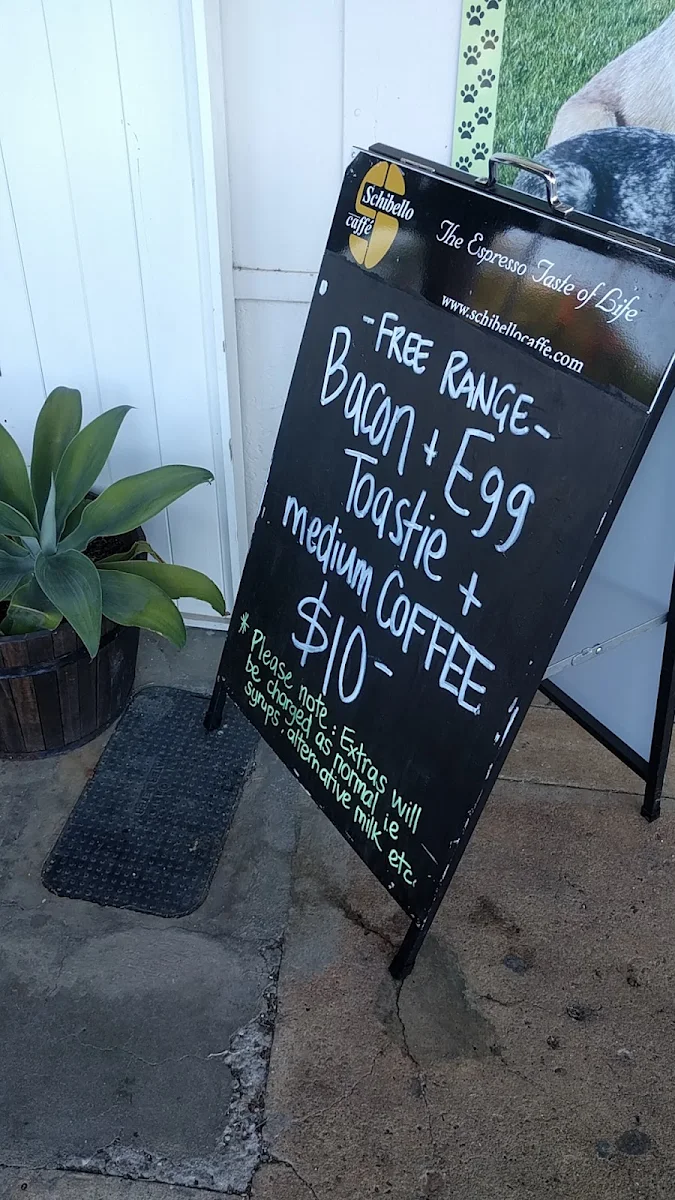 Schibello
caffé
The Espresso Taste of Life
www.schibellocaffe.com
-FREE RANGE-
Bacon + Egg
Toastie +
medium COFFEE
$10-
* Please note: Extras will
be charged as normal i.e
syrups, alternative milk etc.